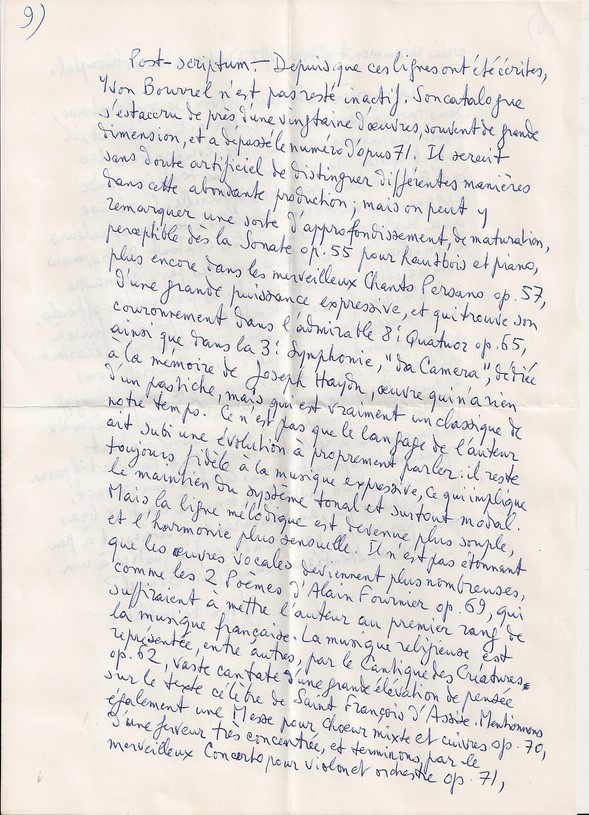 9)
Post-scriptum.— Depuis que ces lignes ont été écrites,
Yvon Bourrel n'est pas resté inactif. Son catalogue
s'est accru de près d'une vingtaine d'œuvres, souvent de grande
dimension, et a dépassé le numéro d'opus 71. Il serait
sans doute artificiel de distinguer différentes manières
dans cette abondante production ; mais on peut y
remarquer une sorte d'approfondissement, de maturation,
perceptible dès la Sonate op. 55 pour hautbois et piano,
plus encore dans les merveilleux Chants Persans op. 57,
d'une grande puissance expressive, et qui trouve son
couronnement dans l'admirable 8e Quatuor op. 65,
ainsi que dans la 3e Symphonie, "da Camera", dédiée
à la mémoire de Joseph Haydn, œuvre qui n'a rien
d'un pastiche, mais qui est vraiment un classique de
notre temps. Ce n'est pas que le langage de l'auteur
ait subi une évolution à proprement parler : il reste
toujours fidèle à la musique expressive, ce qui implique
le maintien du système tonal et surtout modal.
Mais la ligne mélodique est devenue plus souple,
et l'harmonie plus sensuelle. Il n'est pas étonnant
que les œuvres vocales deviennent plus nombreuses,
comme les 2 Poèmes d'Alain Fournier op. 69, qui
suffiraient à mettre l'auteur au premier rang de
la musique française. La musique religieuse est
représentée, entre autres, par le Cantique des Créatures,
op. 62, vaste cantate d'une grande élévation de pensée
sur le texte célèbre de Saint François d'Assise. Mentionnons
également une Messe pour chœur mixte et cuivres op. 70,
d'une ferveur très concentrée, et terminons par le
merveilleux Concerto pour violon et orchestre op. 71,